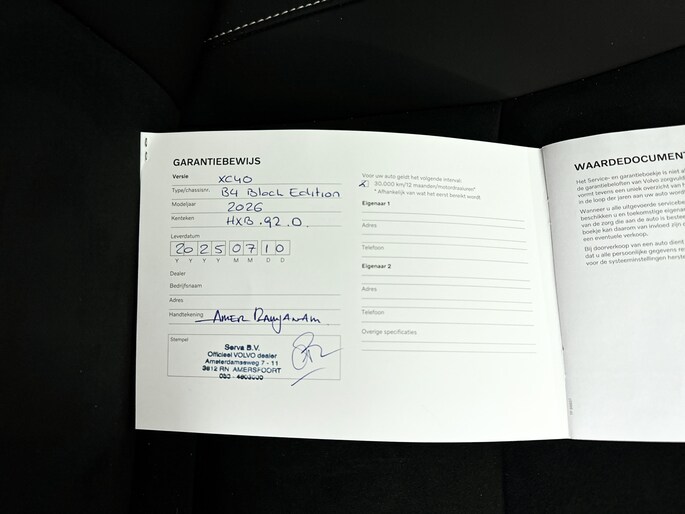 GARANTIEBEWIJS
Versie XC40
Type/chassisnr. B4 Black Edition
Modeljaar 2026
Kenteken HXB.92.D.
Leverdatum
2 0 2 5 0 7 1 0
Y Y Y Y M M D D
Dealer
Bedrijfsnaam
Adres
Handtekening AMER
Stempel
Serva B.V.
Officieel VOLVO dealer
Amsterdamseweg 7 - 11
3812 RN AMERSFOORT
Voor uw auto geldt het volgende interval:
30.000 km/12 maanden/motordraaiuren*
* Afhankelijk van wat het eerst bereikt wordt.
Eigenaar 1
Adres
Telefoon
Eigenaar 2
Adres
Telefoon
Overige specificaties
WAARDEDOCUMENT
Het Service- en garantieboekje is niet al
de garantiebeloften van Volvo zorgvuld
vormt tevens een uniek overzicht van h
in de loop der jaren aan uw auto wordt
Wanneer u alle uitgevoerde servicebe
beschikken u en toekomstige eigenare
van de zorg die aan de auto is bested
boekje kan daarom van invloed zijn o
een eventuele verkoop.
Bij doorverkoop van een auto dient
dat u alle persoonlijke gegevens re
voor de systeeminstellingen herste